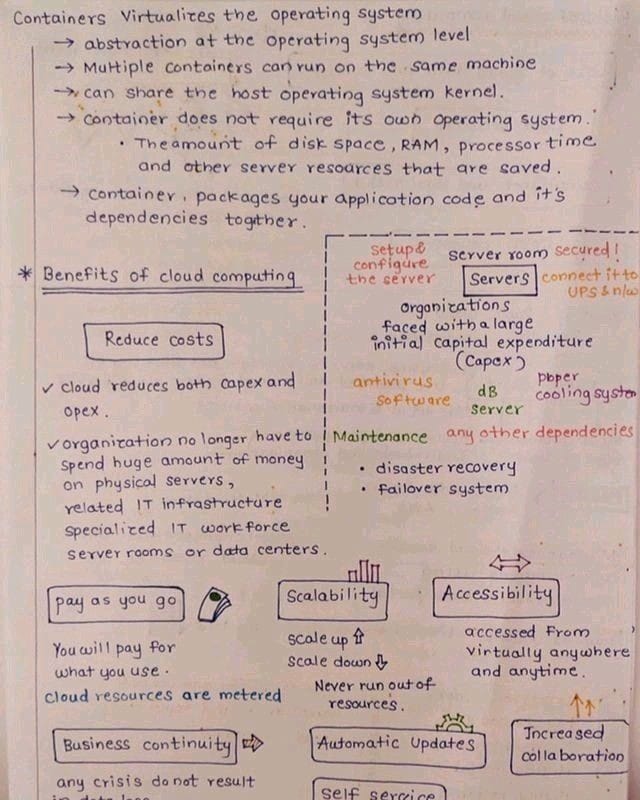 Containers Virtualizes the operating system
→ abstraction at the operating system level
→ Multiple containers can run on the same machine
→ can share the host operating system kernel.
→ container does not require its own operating system.
• The amount of disk space, RAM, processor time
and other server resources that are saved.
→ container, packages your application code and it's
dependencies together.
* Benefits of cloud computing
Reduce costs
✓ cloud reduces both capex and
opex.
✓ organization no longer have to
spend huge amount of money
on physical servers,
related IT infrastructure
specialized IT workforce
server rooms or data centers.
setup & configure the server
server room secured!
Servers
connect it to
UPS & n/w
organizations
faced with a large
initial capital expenditure
(Capex)
antivirus
software
dB
server
cooling system
Maintenance any other dependencies
• disaster recovery
• failover system
pay as you go
You will pay for
what you use.
cloud resources are metered
Scalability
scale up ⇧
scale down ⇩
Never run out of
resources.
Accessibility
accessed from
virtually anywhere
and anytime.
Business continuity
any crisis do not result
Automatic Updates
Increased
collaboration
self service